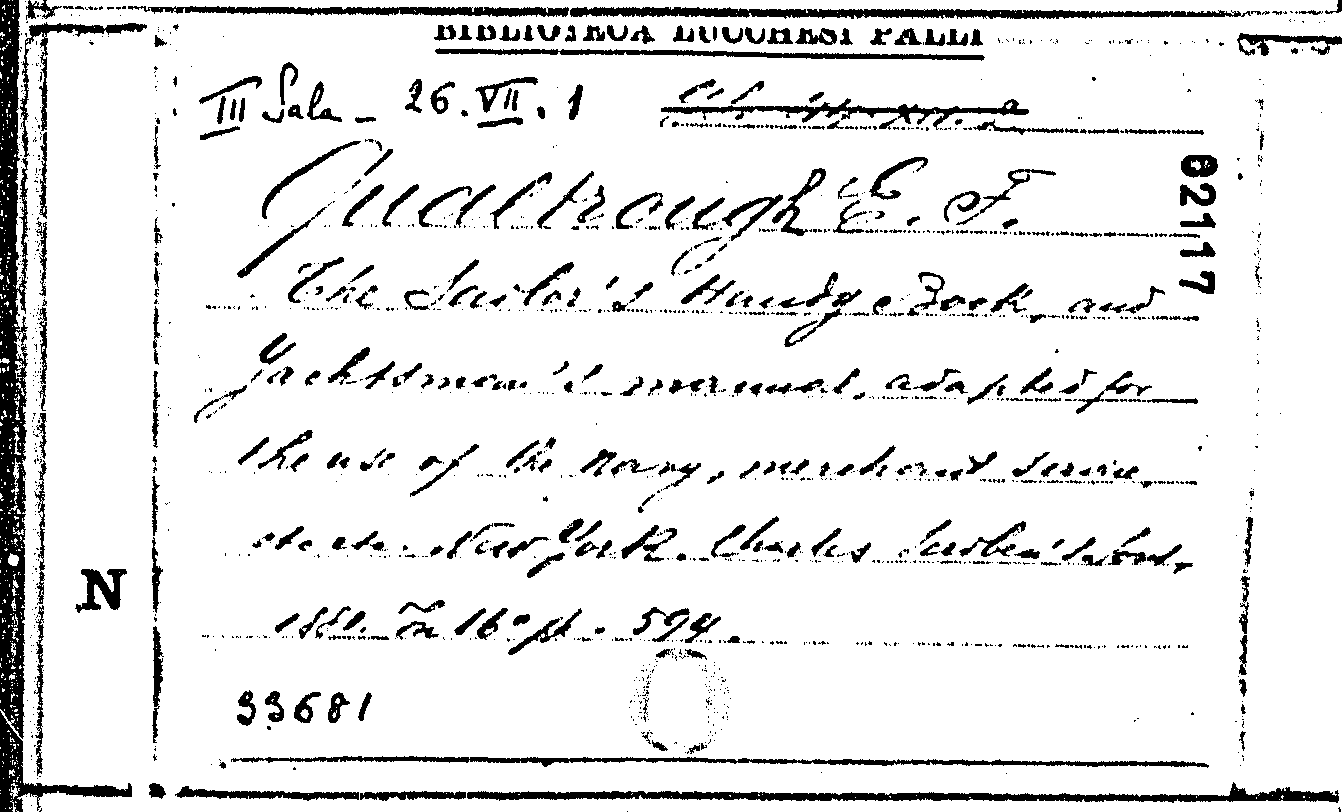 BIBLIOTECA LUCCHESI PALLI
III Sala - 26. VII. 1
Qualtrough E. F.
02117
The Sailor's Handy Book, and
Yachtsman's manual, adapted for
the use of the navy, merchant service,
etc etc. New York. Charles Scribner's Sons,
1881. In 16° pp. 594.
N
33681